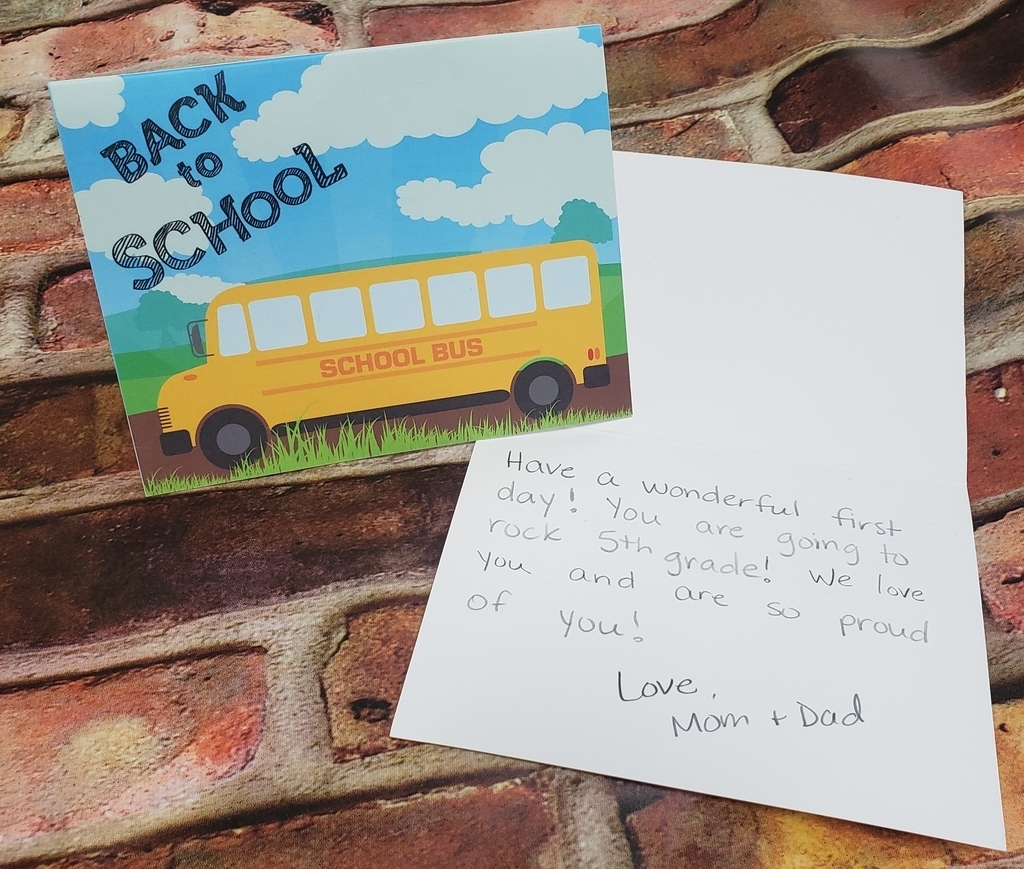 BACK
to
SCHOOL
SCHOOL BUS
Have a wonderful first
day! You are going to
rock 5th grade! We love
you and are so proud
of you!
Love,
Mom + Dad